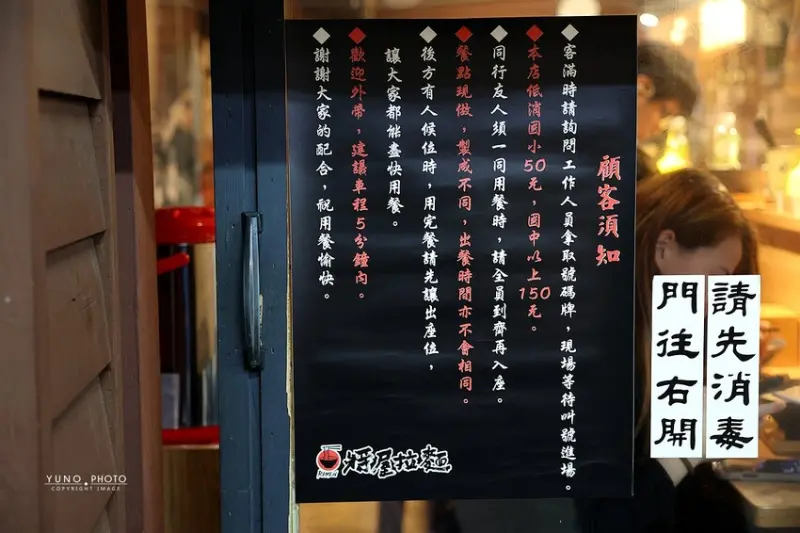 顧客須知
◆客滿時請詢問工作人員拿取號碼牌，現場等待叫號進場。
◆本店低消國小50元，國中以上150元。
◆同行友人須一同用餐時，請全員到齊再入座。
◆餐點現做，製成不同，出餐時間亦不會相同。
◆後方有人候位時，用完餐請先讓出座位，
讓大家都能盡快用餐。
◆歡迎外帶，建議車程5分鐘內。
◆謝謝大家的配合，祝用餐愉快。
屋拉麵
RAMEN
請先消毒
門往右開
YUNO PHOTO
COPYRIGHT IMAGE